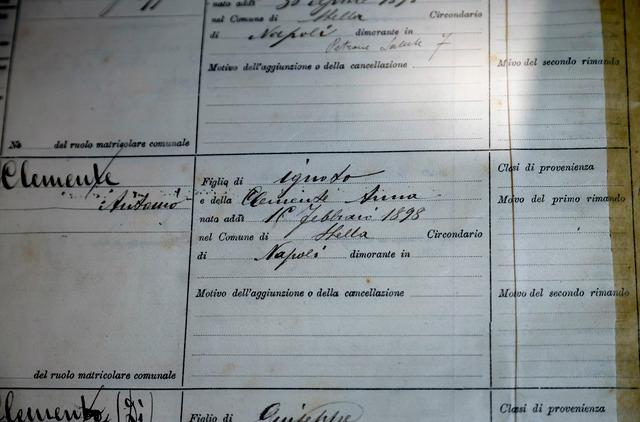 nato addì 1898
nel Comune di Stella Circondario
di Napoli dimorante in
7
Motivo dell'aggiunzione o della cancellazione
Mivo del secondo rimando
No del ruolo matricolare comunale
Clemente
Antonio
Figlio di ignoto
e della Clemente Anna
nato addì 16 febbraio 1898
nel Comune di Stella Circondario
di Napoli dimorante in
Motivo dell'aggiunzione o della cancellazione
del ruolo matricolare comunale
Clasi di provenienza
Movo del primo rimando
Motvo del secondo rimando
Clemente (Di)
Figlio di Giuseppe
Classi di provenienza